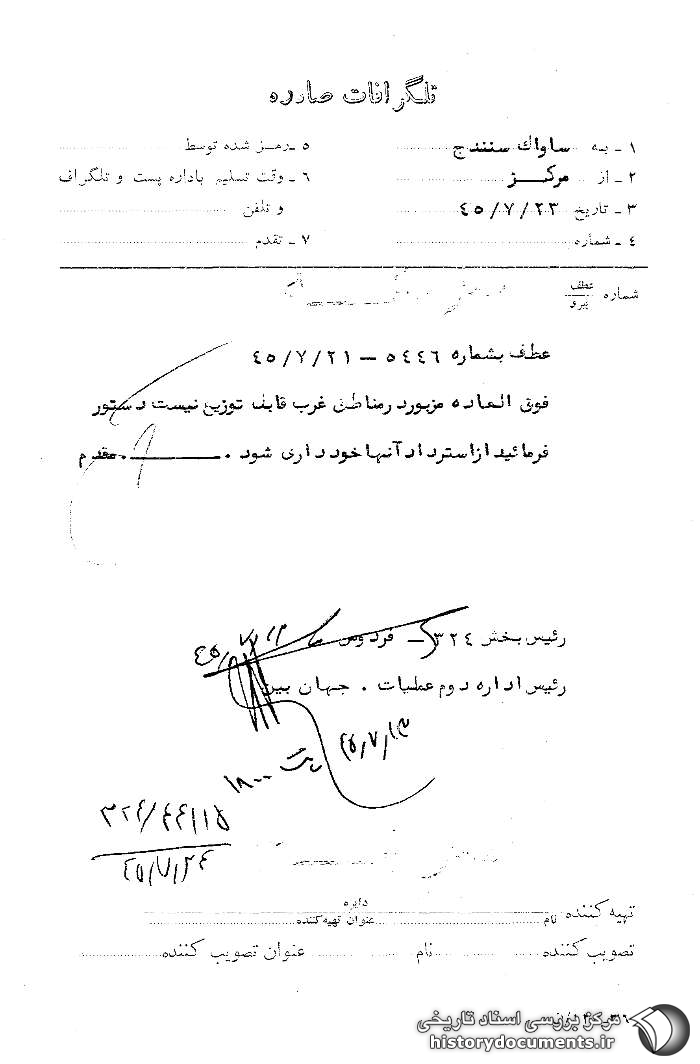 تلگرافات صادره
۱ - به ساواك سنندج
۲ - از مركز
۳ - تاریخ ۴۵/۷/۲۳
۴ - شماره
۵ - رمز شده توسط
۶ - وقت تسلیم باداره پست و تلگراف
و تلفن
۷ - تقدم
شماره عطف
پیرو
عطف بشماره ۵۴۴۶ – ۴۵/۷/۲۱
فوق العاده مزبورد رمناطق غرب قابل توزیع نیست د ستور
فرمائید ازاسترد اد آنها خود د اری شود . ــــــــ . مقدم
رئیس بخش ۳۲۴ – فردوس
۴۵/۷/۲۳
رئیس اداره دوم عملیات . جهان بین
۴۵/۷/۲۳
ساعت ۱۸۰۰
۳۲۴/۴۴۱۱۵
۴۵/۷/۲۴
تهیه کننده نام
دایره
عنوان تهیه کننده
تصویب کننده نام عنوان تصویب کننده
مرکز بررسی اسناد تاریخی
historydocuments.ir